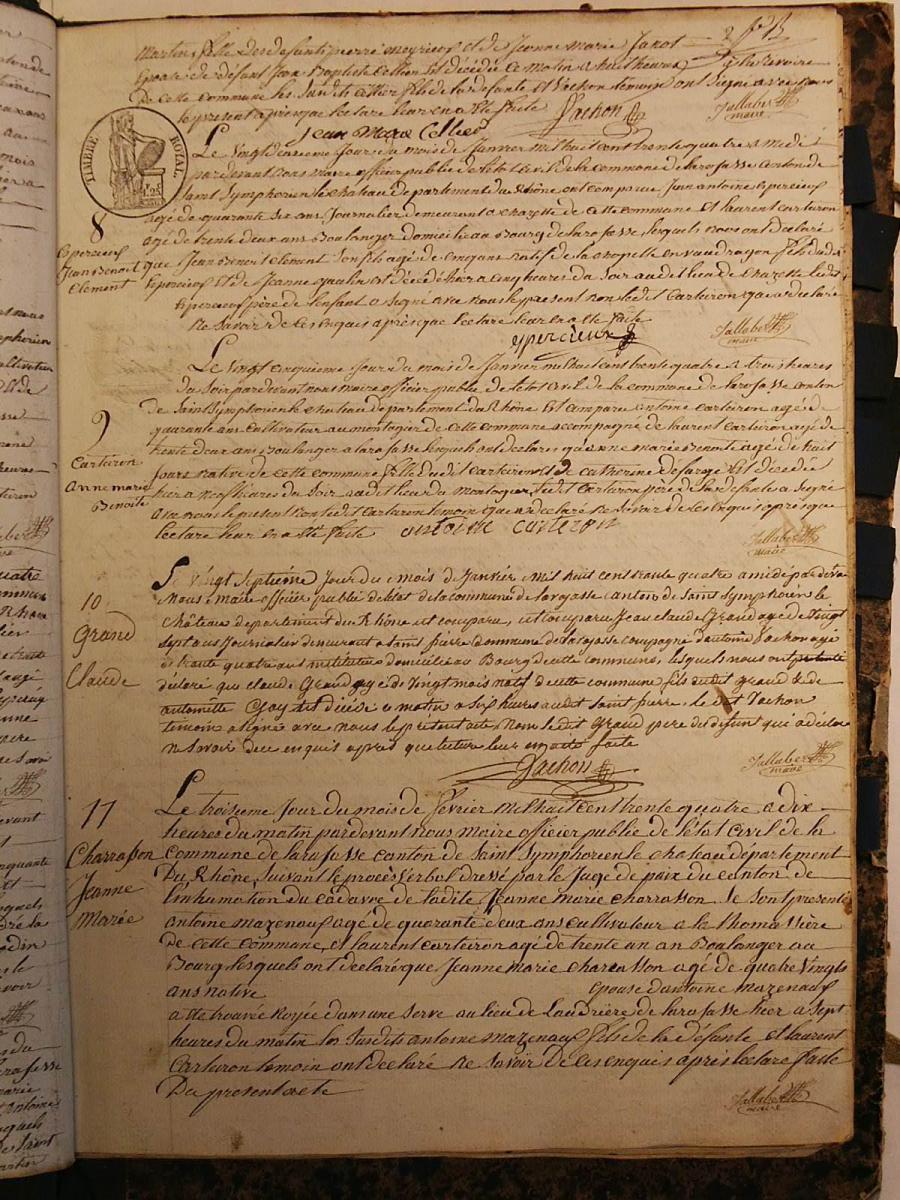 Martin, fille des defunts pierre et de Jeanne marie Janot
Epouse de défunt Jean Baptiste Cellier Est décédée ce matin a huit heures
de cette commune les Susdits Cellier fils de la défante et Vachon temoins ont Signé avec nous
le present apres que lecture leur en a Eté faite
Vachon
Jallabert
maire
Jean Marie Cellier
TIMBRE ROYAL
Le Vingt jour du mois de Janvier mil huit cent trente quatre a midi
pardevant nous maire officier public de l'état Civil de la commune de larafasse canton de
Saint Symphorien le chateau département du Rhône ont comparu Jean antoine Epercieux
agé de quarante Six ans Journalier demeurant a chazette de cette commune Et laurent Carteron
8
agé de trente deux ans Boulanger domicilié au Bourg de larafasse, lesquels nous ont declaré
Epercieux
Jean Benoit
Clement
que Jean Benoit Clement Son fils agé de cinq ans natif de la chapelle en vaudragon fils dudit
Epercieux Et de Jeanne Est décédé hier a cinq heures du Soir audit lieu de chazette ledit
Epercieux père de l'enfant a signé avec nous le present non ledit Carteron qui a declaré
Ne savoir de ce Enquis après que lecture leur en a Eté faite
epercieux
Jallabert
maire
Le Vingt cinquieme Jour du mois de Janvier mil huit cent trente quatre a trois heures
du Soir pardevant nous maire officier public de l'etat Civil de la commune de larafasse canton
de Saint Symphorien le chateau département du Rhône Est comparu antoine Carteron agé de
9
quarante ans cultivateur au montagier de cette commune accompagné de laurent Carteron agé de
trente deux ans Boulanger a larafasse lesquels ont declaré que anne marie Benoite agé de huit
Carteron
Anne marie
Benoite
Jours native de cette commune fille dudit Carteron Et de Catherine Est décédée
hier a neuf heures du Soir audit lieu du montagier, ledit Carteron père de la défante a Signé
avec nous le present non ledit Carteron temoin qui a declaré Ne Savoir de ce Enquis après que
lecture leur en a Eté faite
antoine carteron
Jallabert
maire
Le Vingt Septième Jour du mois de Janvier mil huit cent trente quatre a midi pardevant
10
Nous maire officier public de l'état de la commune de larajasse canton de Saint Symphorien le
Grand
Château département du Rhône est comparu Jean claude Grand agé de Vingt
Sept ans Journalier demeurant a Saint pierre commune de larajasse accompagné d'antoine Vachon agé
de trente quatre ans instituteur domicilié au Bourg de cette commune, lesquels nous ont
Claude
déclaré que claude Grand agé de Vingt mois natif de cette commune fils dudit grand Et de
antoinette Gay Est décédé ce matin a Sept heures audit Saint pierre, le dit Vachon
témoin a Signé avec nous le présent acte Non le dit Grand pere du défunt qui a déclaré
ne Savoir de ce enquis après que lecture leur en a été faite
Vachon
Jallabert
maire
11
Le troisieme Jour du mois de février mil huit cent trente quatre a dix
heures du matin pardevant Nous Maire officier public de l'état Civil de la
Charrasson
commune de larafasse canton de Saint Symphorien le chateau département
Jeanne
Du Rhône, Suivant le procès verbal dressé par le Juge de paix du canton de
l'inhumation du cadavre de ladite Jeanne Marie charrasson. Se sont présenté
Marie
antoine Mazenauf agé de quarante deux ans cultivateur a la thomassière
De cette commune, et laurent carteron agé de trente un an Boulanger au
Bourg lesquels ont declaré que Jeanne Marie charrasson agé de quatre Vingts
ans native épouse d'antoine Mazenauf
a été trouvée Noyée dans une Serve au lieu de de larafasse hier a sept
heures du matin les Susdits antoine Mazenauf fils de la défante et laurent
Carteron temoin ont déclaré Ne Savoir de ce enquis après lecture faite
Du present acte
Jallabert
maire